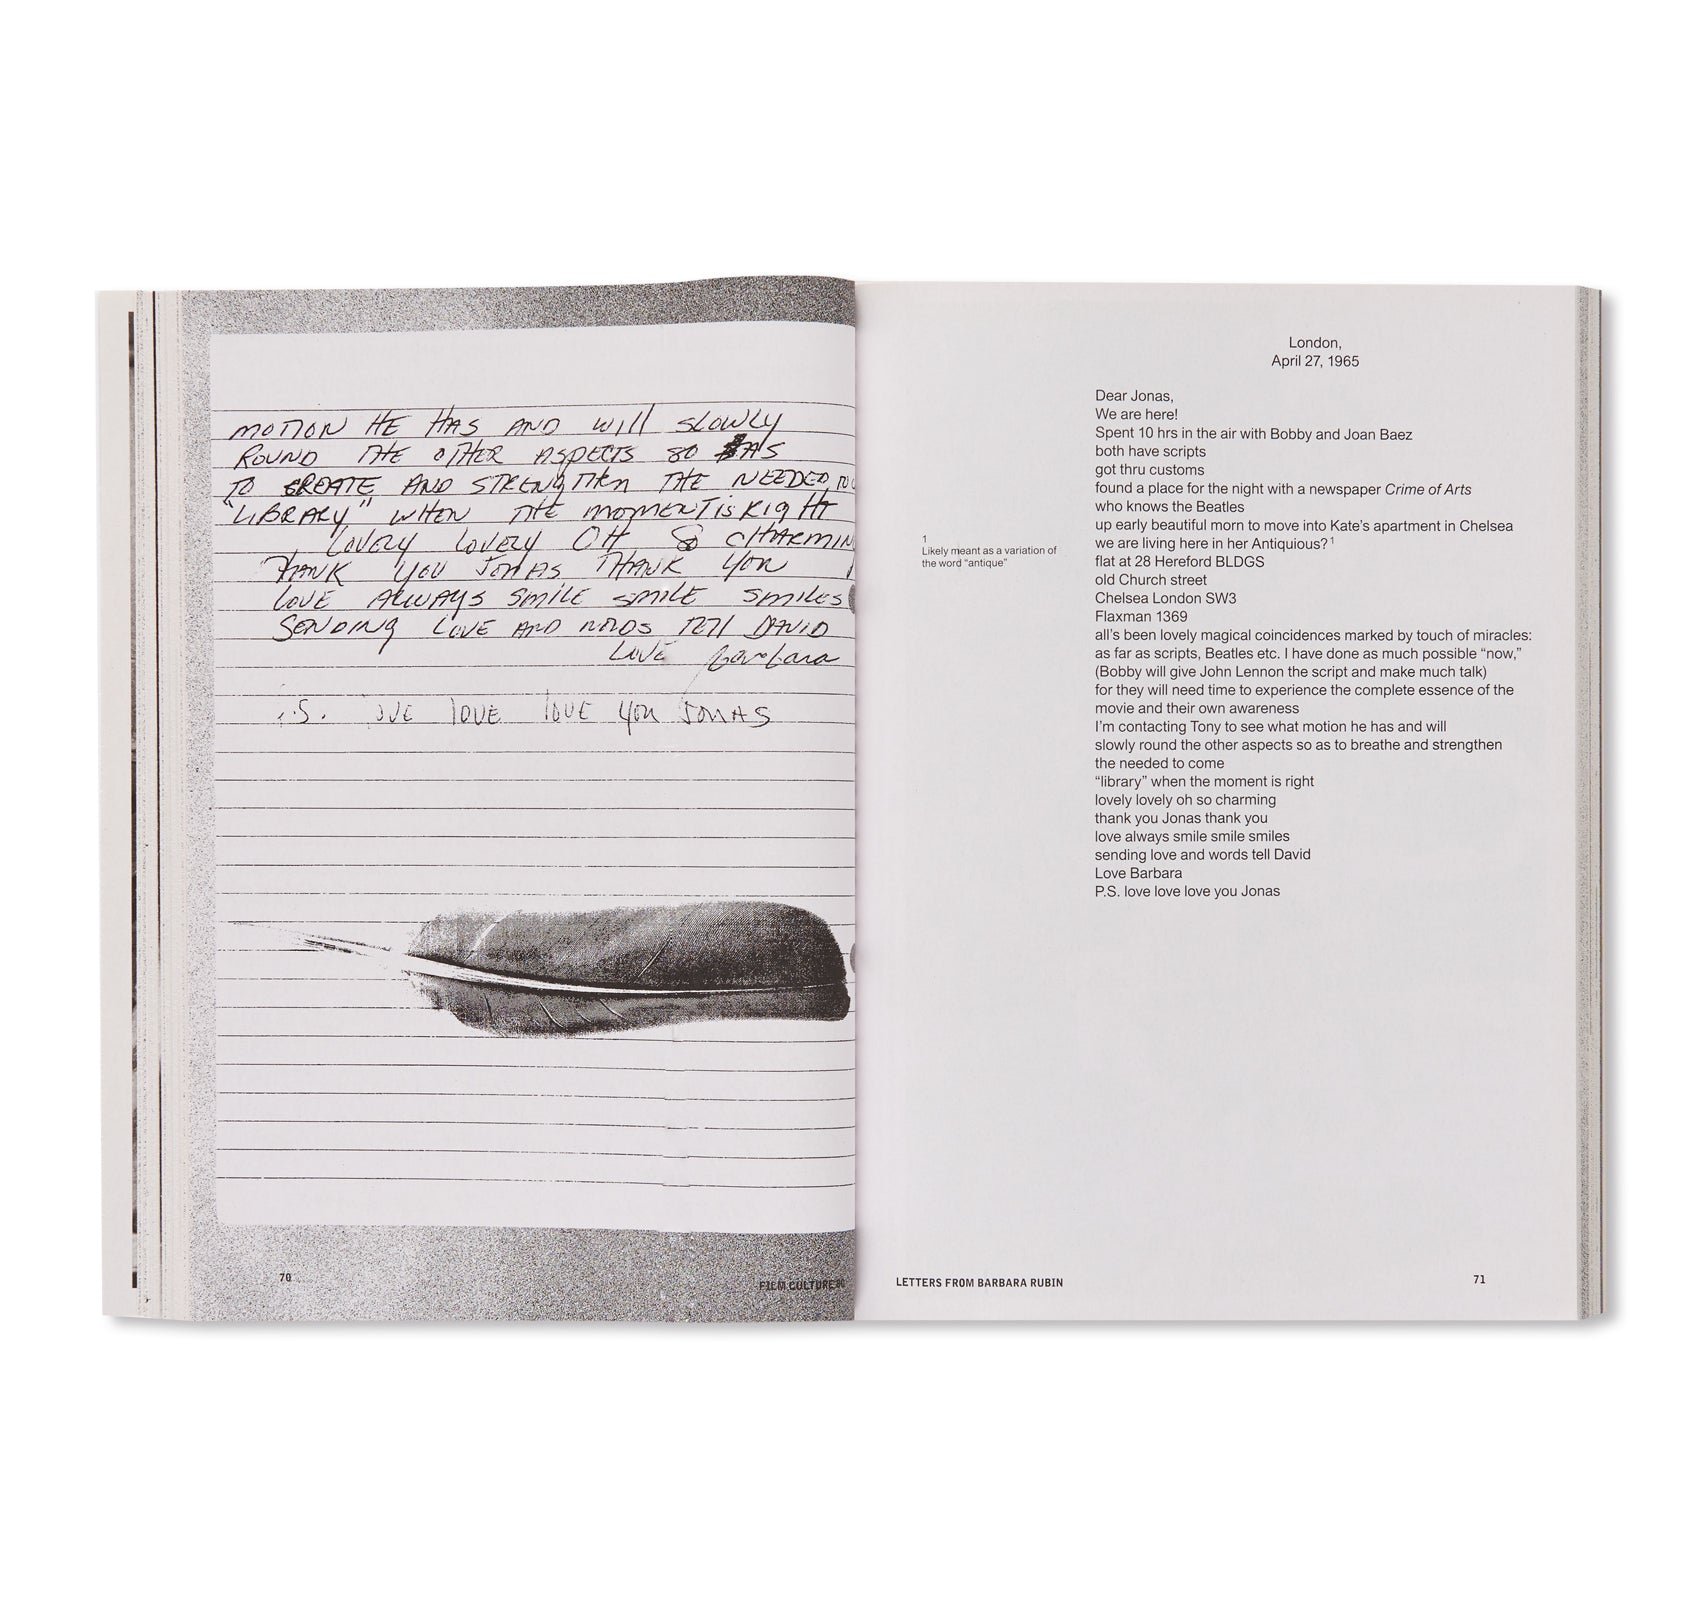 MOTION HE HAS AND WILL SLOWLY
ROUND THE OTHER ASPECTS SO AS
TO CREATE AND STRENGTHEN THE NEEDED
"LIBRARY" WHEN THE MOMENT IS RIGHT
LOVELY LOVELY OH SO CHARMIN
THANK YOU JONAS THANK YOU
LOVE ALWAYS SMILE SMILE SMILES
SENDING LOVE AND WORDS TELL DAVID
LOVE Barbara
.S. OVE LOVE LOVE YOU JONAS
70
FILM CULTURE 80
London,
April 27, 1965
Dear Jonas,
We are here!
Spent 10 hrs in the air with Bobby and Joan Baez
both have scripts
got thru customs
found a place for the night with a newspaper Crime of Arts
who knows the Beatles
up early beautiful morn to move into Kate's apartment in Chelsea
we are living here in her Antiquious?1
flat at 28 Hereford BLDGS
old Church street
Chelsea London SW3
Flaxman 1369
all's been lovely magical coincidences marked by touch of miracles:
as far as scripts, Beatles etc. I have done as much possible “now,”
(Bobby will give John Lennon the script and make much talk)
for they will need time to experience the complete essence of the
movie and their own awareness
I'm contacting Tony to see what motion he has and will
slowly round the other aspects so as to breathe and strengthen
the needed to come
“library” when the moment is right
lovely lovely oh so charming
thank you Jonas thank you
love always smile smile smiles
sending love and words tell David
Love Barbara
P.S. love love love you Jonas
1
Likely meant as a variation of
the word “antique”
LETTERS FROM BARBARA RUBIN
71